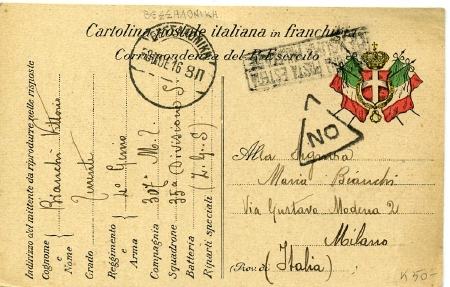 BESSARONIKA.
Cartolina postale italiana in franchigia
Corrispondenza del R. Esercito
ΘΕΣΣΑΛΟΝΙΚΗ
16 3Π
POSTE ESTERE
NO
Indirizzo del mittente da riprodurre nelle risposte
Cognome e Nome Bianchi Vittorio
Grado
Reggimento e Arma 4° Genio
Compagnia 307ª M. Z.
Squadrone 35ª Divisione
Batteria
Riparti speciali (Z. G. S)
Alla Signora
Maria Bianchi
Via Gustavo Modena 2
Milano
(Prov. di Italia)
K 50-